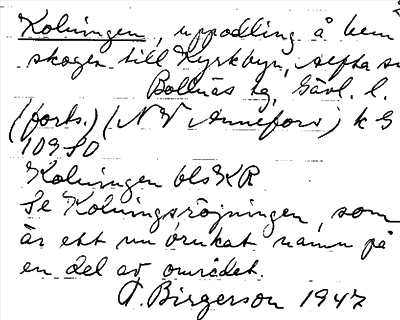 Kolningen, uppodling å hem
skogen till Kyrkbyn, Alfta sn
Bollnäs tg, Gävl. l.
(forts.) (N V Annefors) k G
109 SO
Kolningen bls KR
Se Kolningsröjningen, som
är ett nu brukat namn på
en del av området.
T. Birgerson 1947